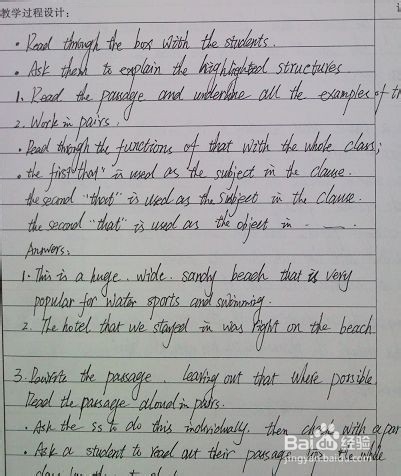 教学过程设计:
• Read through the box with the students.
• Ask them to explain the highlighted structures
1. Read the passage and underline all the examples of
2. Work in pairs.
• Read through the functions of that with the whole class;
• the first "that" is used as the subject in the clause.
the second "that" is used as the subject in the clause.
the second "that" is used as the object in - - .
Answers:
1. This is a huge, wide, sandy beach that is very
popular for water sports and swimming.
2. The hotel that we stayed in was right on the beach
3. Rewrite the passage, leaving out that where possible.
Read the passage aloud in pairs.
• Ask the ss to do this individually, then check with a par
• Ask a student to read out their passage the whole
Baidu 经验
jingyan.baidu.com